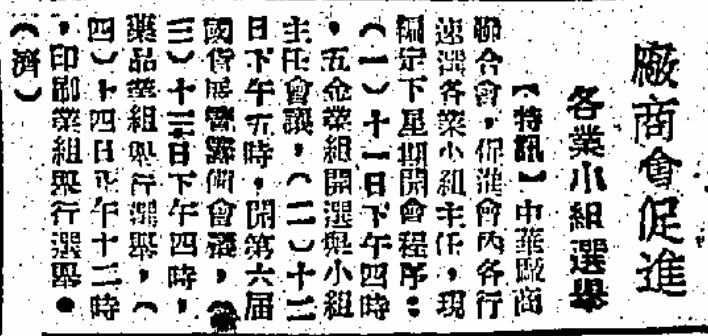 廠商會促進
各業小組選舉
【特訊】中華廠商
聯合會，促進會內各行
速選各業小組主任，現
編定下星期開會程序：
（一）十一日下午四時
，五金業組開選舉小組
主任會議，（二）十二
日下午五時，開第六屆
國貨展覽籌備會議，（
三）十三日下午四時，
藥品業組舉行選舉，（
四）十四日正午十二時
，印刷業組舉行選舉。
（濟）